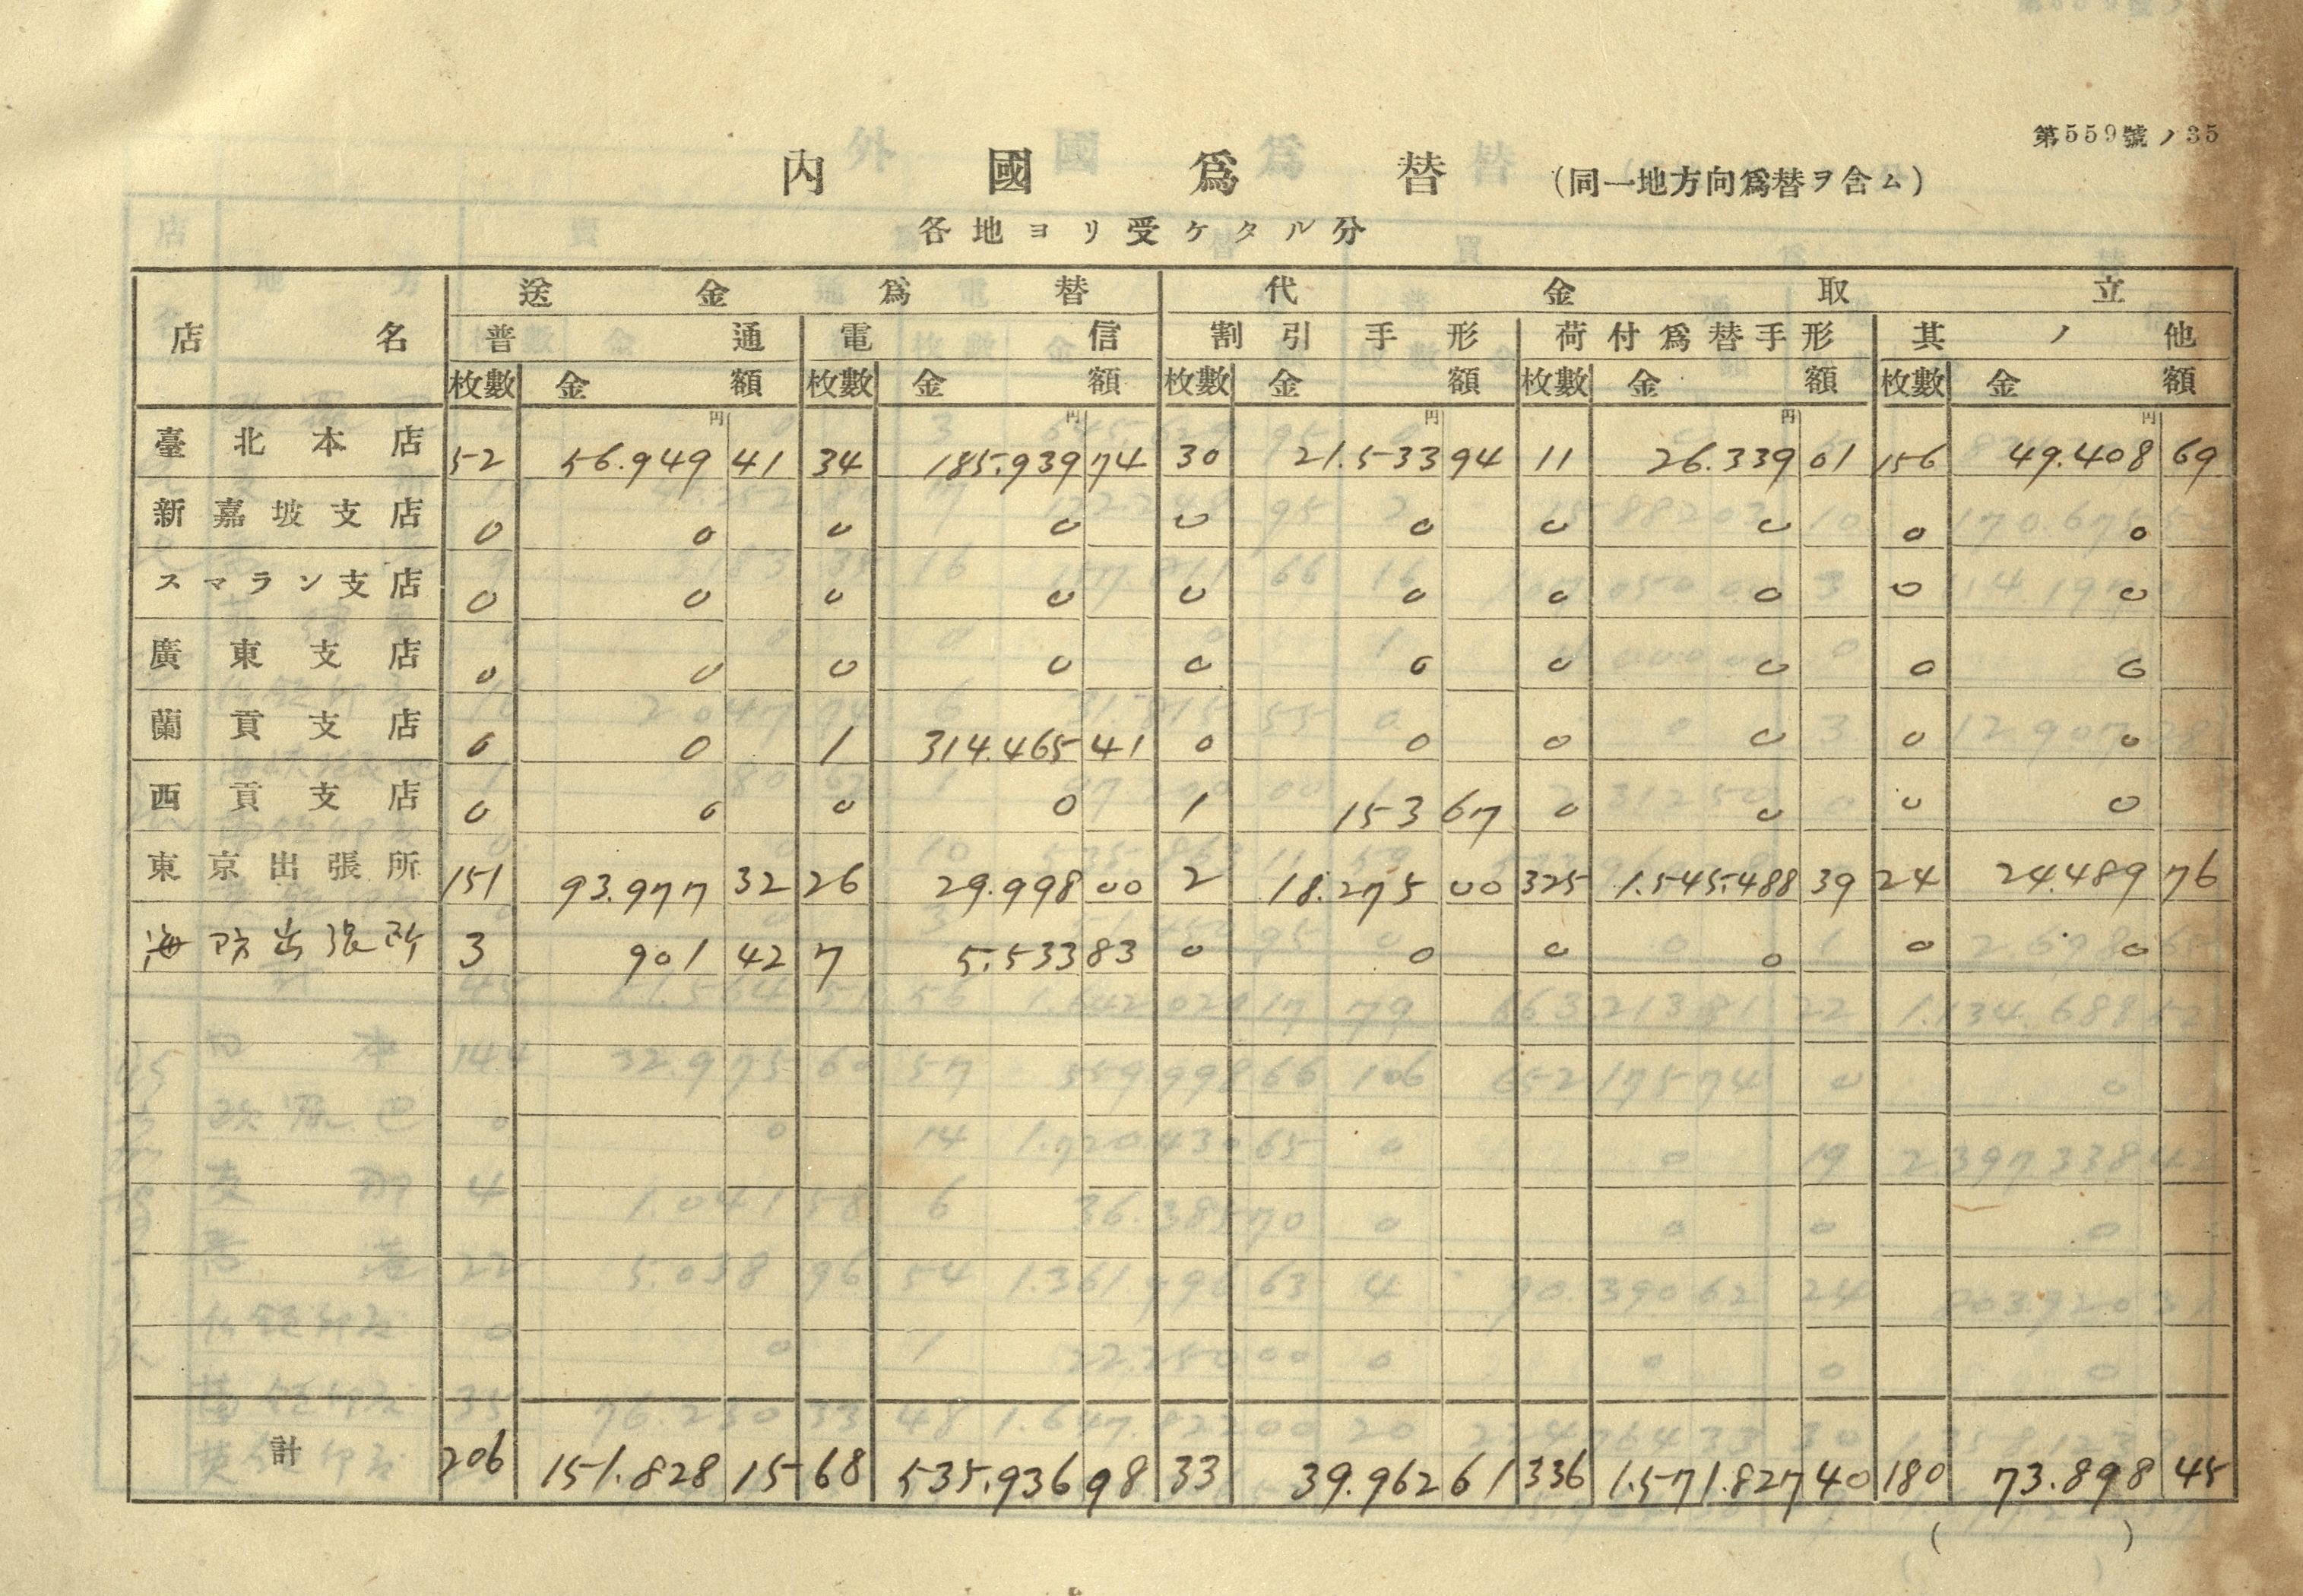 第559號ノ35
內國爲替 (同一地方向爲替ヲ含ム)
各地ヨリ受ケタル分
店名 送金爲替 代金取立
普通 電信 割引手形 荷付爲替手形 其ノ他
枚數 金額 枚數 金額 枚數 金額 枚數 金額 枚數 金額
円 円 円 円 円
臺北本店 52 56.949 41 34 185.939 74 30 21.533 94 11 26.339 01 156 49.408 69
新嘉坡支店 0 0 0 0 0 0 0 0 0 0
スマラン支店 0 0 0 0 0 0 0 0 0 0
廣東支店 0 0 0 0 0 0 0 0 0 0
蘭貢支店 0 0 1 314.465 41 0 0 0 0 0 0
西貢支店 0 0 0 0 1 153 67 0 0 0 0
東京出張所 151 93.977 32 26 29.998 00 2 18.275 00 325 1.545.488 39 24 24.489 76
海防出張所 3 901 42 7 5.533 83 0 0 0 0 0 0
計 206 151.828 15 68 535.936 98 33 39.962 61 336 1.571.827 40 180 73.898 45
( )